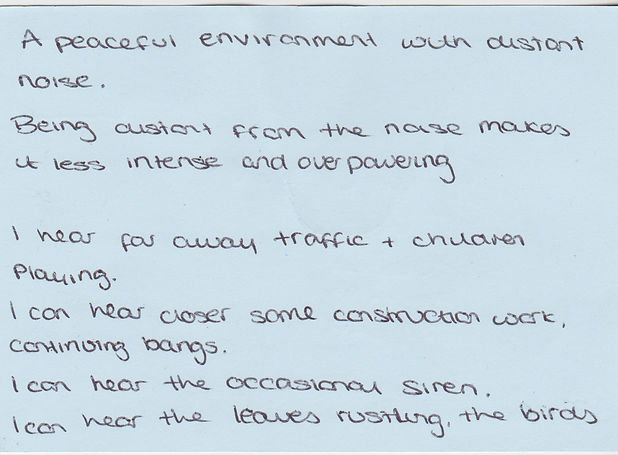 A peaceful environment with distant
noise.
Being distant from the noise makes
it less intense and overpowering
I hear far away traffic + children
playing.
I can hear closer some construction work,
continuing bangs.
I can hear the occasional siren.
I can hear the leaves rustling, the birds